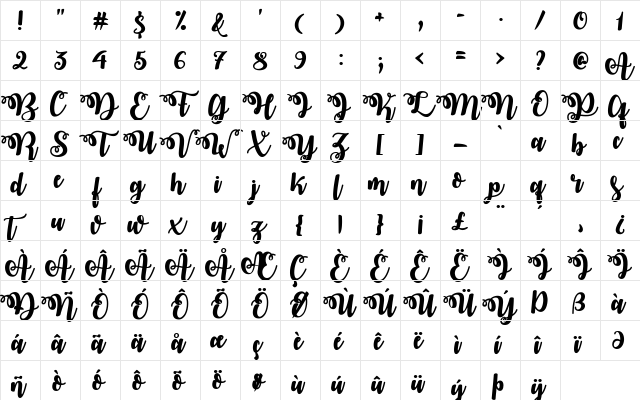 ! " # $ % & ' ( ) * , - . / 0 1
2 3 4 5 6 7 8 9 : ; < = > ? @ A
B C D E F G H I J K L M N O P Q
R S T U V W X Y Z [ ] _ ` a b c
d e f g h i j k l m n o p q r s
t u v w x y z { | } ¡ £ ¨ ¸ ¿
À Á Â Ã Ä Å Æ Ç È É Ê Ë Ì Í Î Ï
Ð Ñ Ò Ó Ô Õ Ö Ø Ù Ú Û Ü Ý Þ ß à
á â ã ä å æ ç è é ê ë ì í î ï ð
ñ ò ó ô õ ö ø ù ú û ü ý þ ÿ